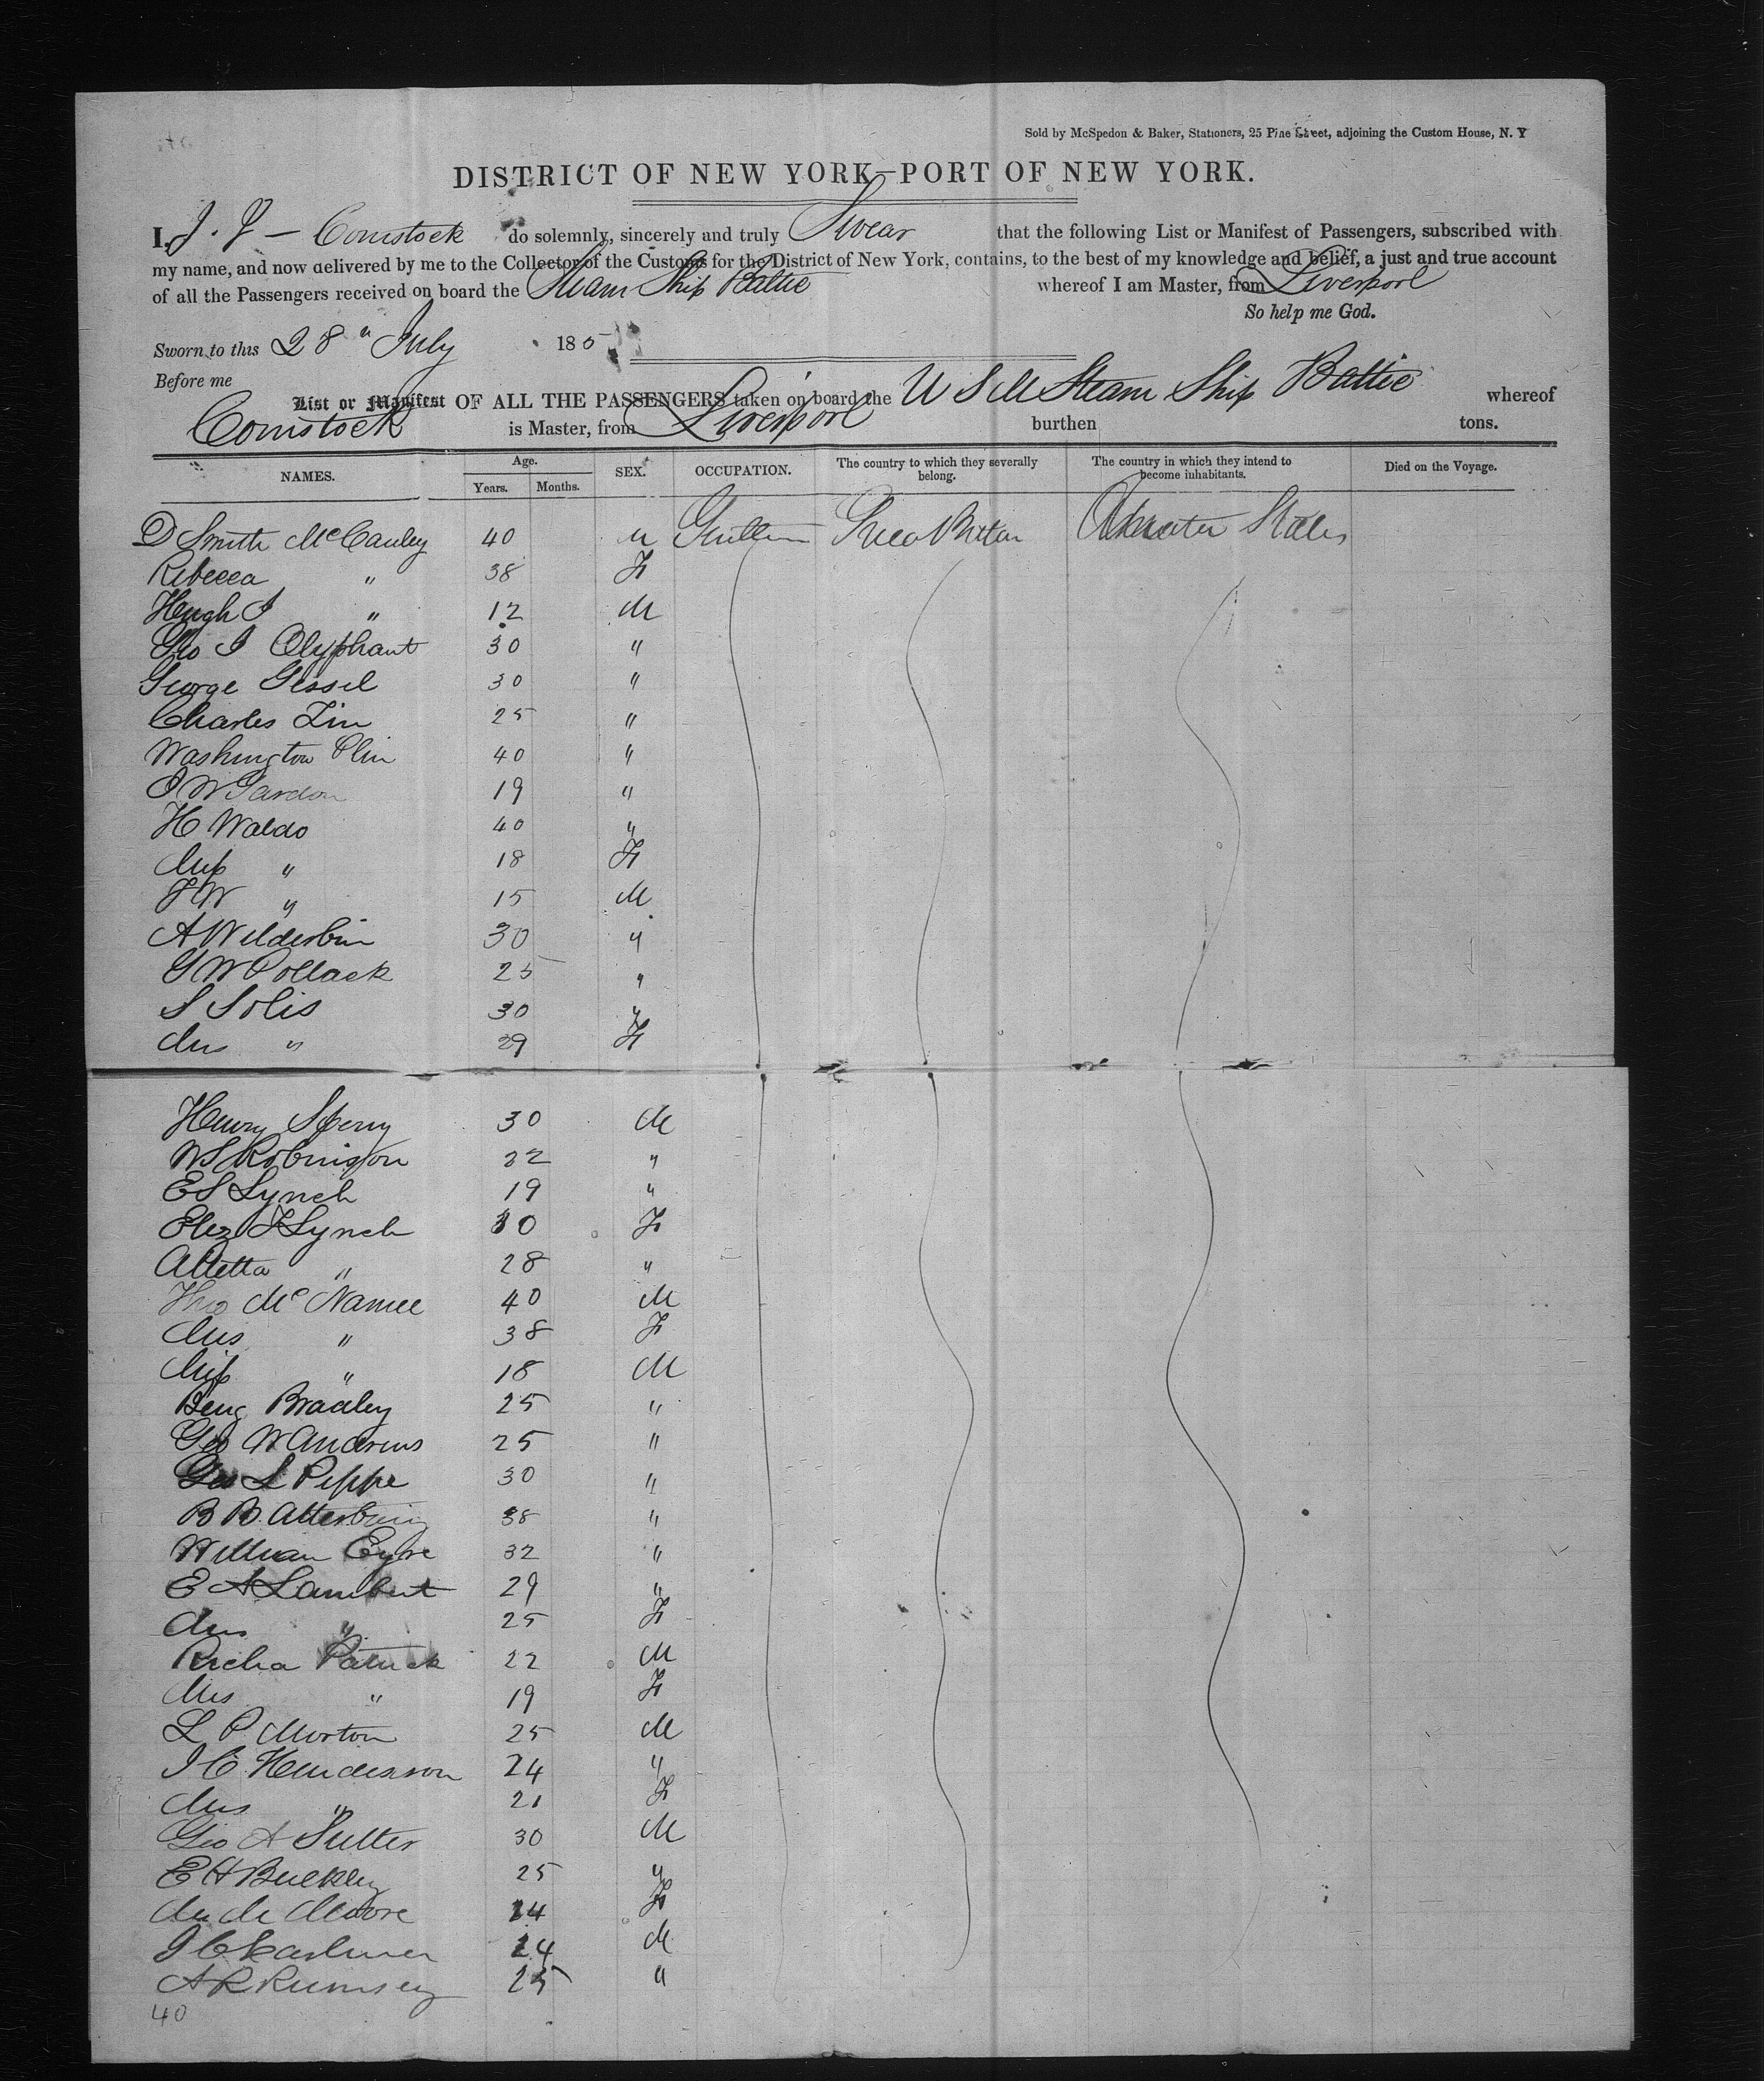 Sold by McSpedon & Baker, Stationers, 25 Pine Street, adjoining the Custom House, N. Y
DISTRICT OF NEW YORK—PORT OF NEW YORK.
I, J. J — Comstock do solemnly, sincerely and truly Swear that the following List or Manifest of Passengers, subscribed with
my name, and now delivered by me to the Collector of the Customs for the District of New York, contains, to the best of my knowledge and belief, a just and true account
of all the Passengers received on board the Steam Ship Baltic whereof I am Master, from Liverpool
So help me God.
Sworn to this 28" July 185
Before me
List or Manifest OF ALL THE PASSENGERS taken on board the U S M Steam Ship Baltic whereof
Comstock is Master, from Liverpool burthen tons.
NAMES. Age. Years. Months. SEX. OCCUPATION. The country to which they severally belong. The country in which they intend to become inhabitants. Died on the Voyage.
D Smith McCauley 40 M States
Rebecca " 38 F
Hugh J " 12 M
Geo J Olyphant 30 "
George Gessel 30 "
Charles 25 "
Washington 40 "
J W 19 "
H Waldo 40 "
Miss " 18 F
J W " 15 M
A 30 "
G W Pollack 25 "
S Solis 30 "
Mrs " 29 F
Henry Sperry 30 M
W S Robinson 22 "
E S Lynch 19 "
Eliz F Lynch 30 F
Alletta " 28 "
Theo McNamee 40 M
Mrs " 38 F
Miss " 18 M
Benj Bradley 25 "
Geo W Andrews 25 "
Geo L Peppe 30 "
B B Atterbury 38 "
William Eyre 32 "
E A Lambert 29 "
Mrs " 25 F
Richd Patrick 22 M
Mrs " 19 F
L P Morton 25 M
J C Henderson 24 "
Mrs " 21 F
Geo A Sutter 30 M
E H Bulkley 25 "
Moore 24 F
J C 24 M
A R Rumsey 25 "
40